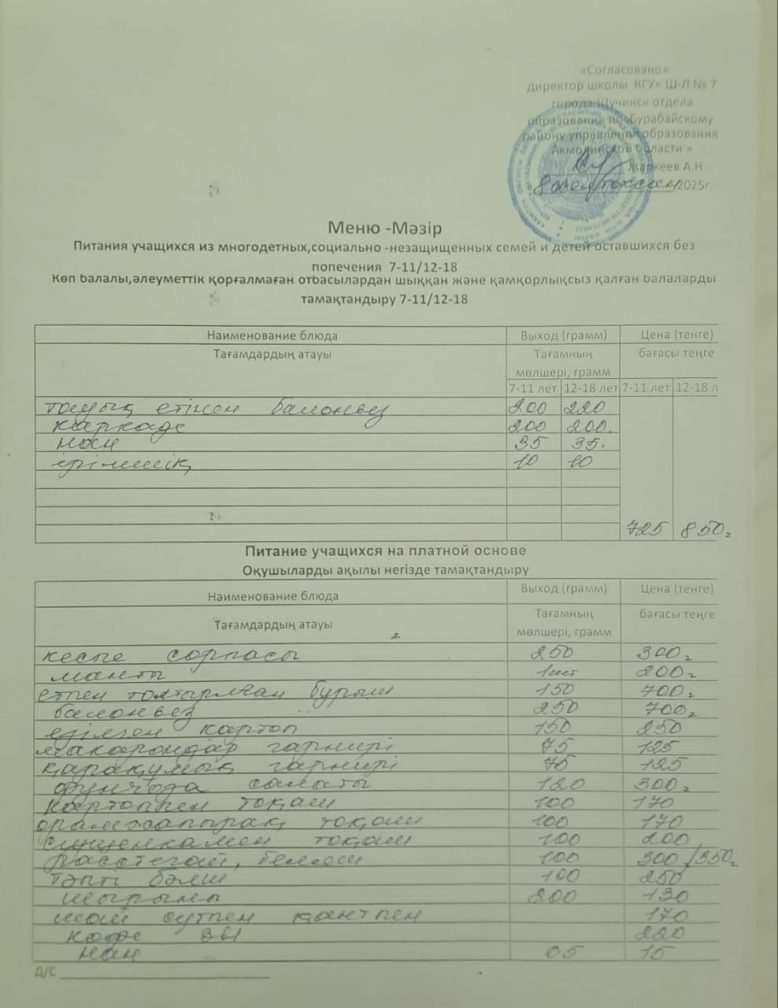 «Согласовано»
директор школы КГУ« Ш-Л № 7
города Щучинск отдела
образования по Бурабайскому
району управления образования
Акмолинской области »
Жаркеев А.Н
8 желтоқсан 2025г.
Меню -Мәзір
Питания учащихся из многодетных,социально -незащищенных семей и детей оставшихся без
попечения 7-11/12-18
Көп балалы,әлеуметтік қорғалмаған отбасылардан шыққан және қамқорлықсыз қалған балаларды
тамақтандыру 7-11/12-18
Наименование блюда Выход (грамм) Цена (тенге)
Тағамдардың атауы Тағамның мөлшері, грамм бағасы теңге
7-11 лет 12-18 лет 7-11 лет 12-18 л
тауық етінен балонвез 200 220
каркаде 200 200.
нан 35 35.
ірімшік 10 10
725 850г
Питание учащихся на платной основе
Оқушыларды ақылы негізде тамақтандыру
Наименование блюда Выход (грамм) Цена (тенге)
Тағамдардың атауы Тағамның мөлшері, грамм бағасы теңге
кеспе сорпасы 250 300г
манты 1шт 200г
етпен толтырылған бұрыш 150 700г
балонвез 250 700г
езілген картоп 150 250
макарондар гарнирі 75 125
қарақұмық гарнирі 75 125
фунчоза салаты 120 300г
картоппен тоқаш 100 170
орамжапырақ тоқаш 100 170
сгущенкамен тоқаш 100 200
расстегай, беляш 100 300/350г
тәтті бәліш 100 250
шырын 200 130
шай сүтпен қантпен 170
кофе 3в1 220
нан 05 15
д/с